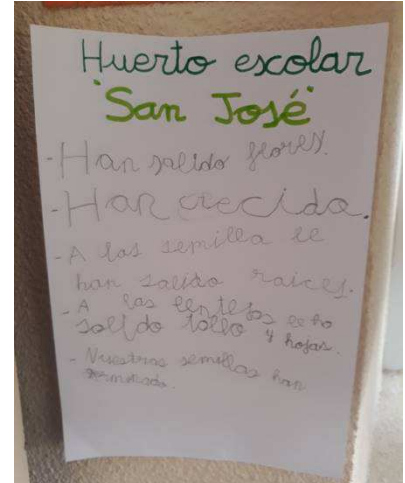 Huerto escolar
"San José"
- Han salido flores.
- Han crecido.
- A las semilla le
han salido raices.
- A las lentejas le ha
salido tallo y hojas.
- Nuestras semillas han
germinado.